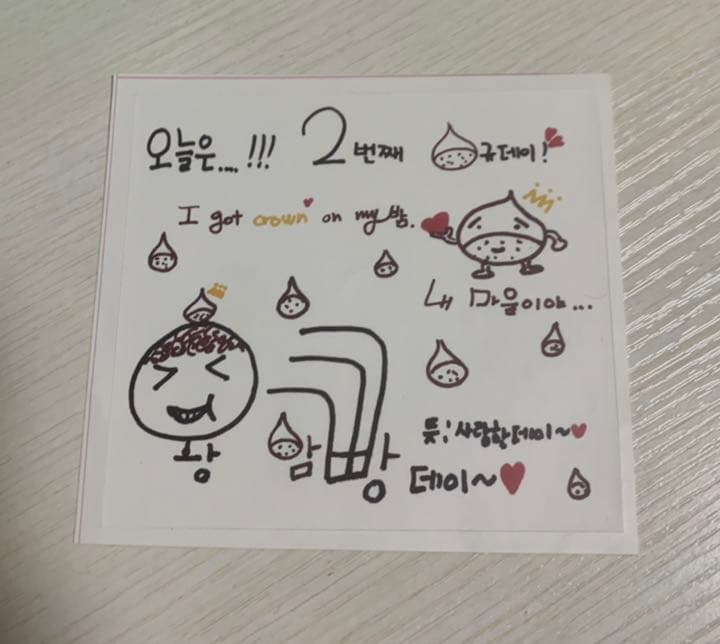 오늘은....!!! 2번째 규데이!
I got crown on my 밤.
내 마음이야...
왕
밤 빵
뜻; 사랑한데이~
데이~